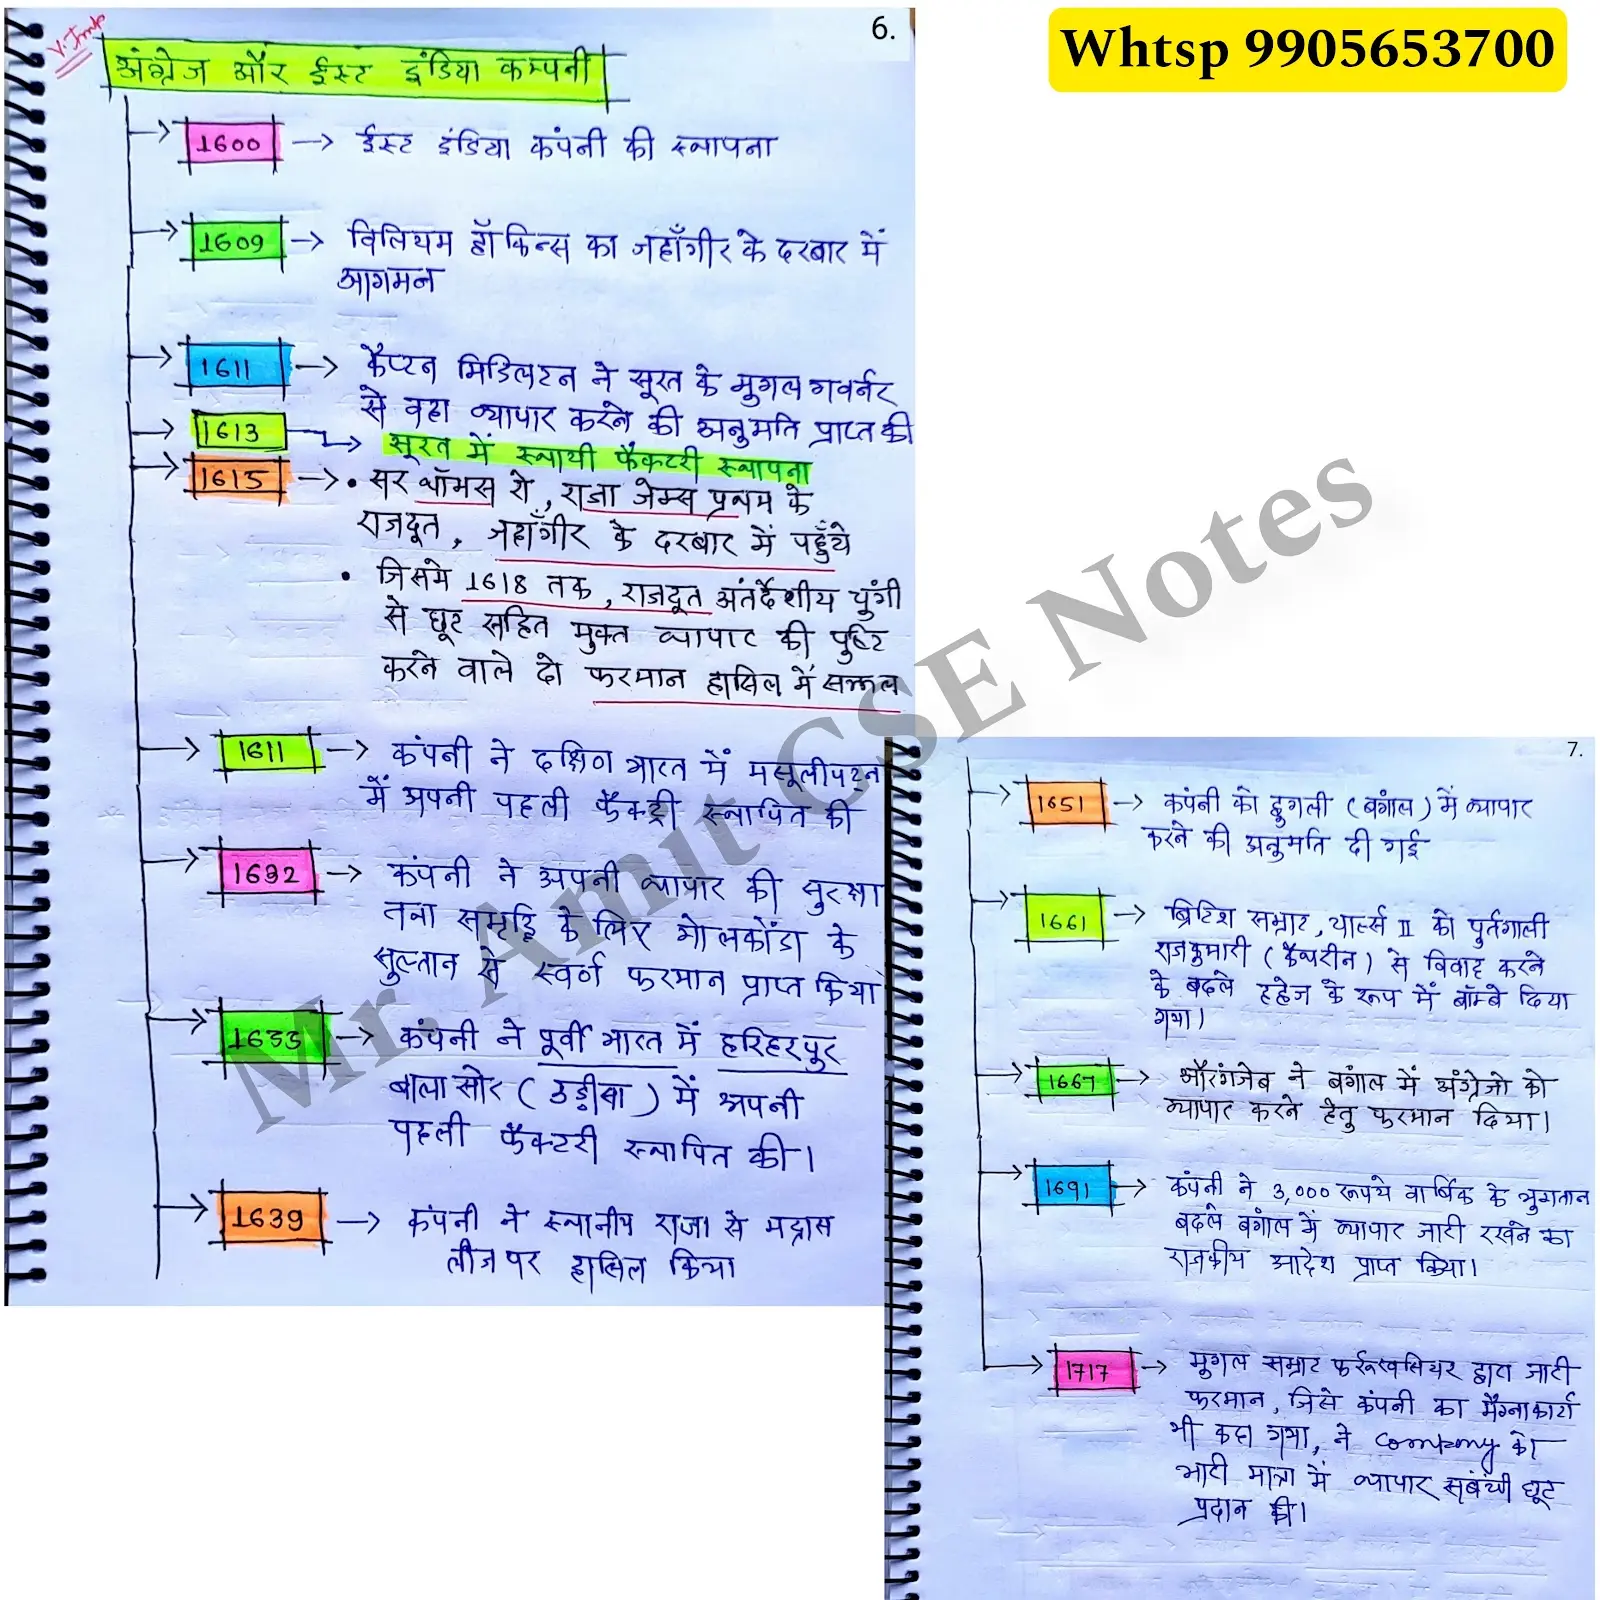 6.
V. Imp
अंग्रेज और ईस्ट इंडिया कम्पनी
1600 → ईस्ट इंडिया कंपनी की स्थापना
1609 → विलियम हॉकिन्स का जहाँगीर के दरबार में
आगमन
1611 → कैप्टन मिडिलटन ने सूरत के मुगल गवर्नर
से वहा व्यापार करने की अनुमति प्राप्त की
1613 → सूरत में स्थायी फैक्टरी स्थापना
1615 → • सर थॉमस रो, राजा जेम्स प्रथम के
राजदूत, जहाँगीर के दरबार में पहुँचे
• जिसमे 1618 तक, राजदूत अंतर्देशीय चुंगी
से छूट सहित मुक्त व्यापार की पुष्टि
करने वाले दो फरमान हासिल में सफल
1611 → कंपनी ने दक्षिण भारत में मसूलीपटन
में अपनी पहली फैक्ट्री स्थापित की
1632 → कंपनी ने अपनी व्यापार की सुरक्षा
तथा समृद्धि के लिए गोलकोंडा के
सुल्तान से स्वर्ण फरमान प्राप्त किया
1633 → कंपनी ने पूर्वी भारत में हरिहरपुर
बालासोर (उड़ीसा) में अपनी
पहली फैक्टरी स्थापित की।
1639 → कंपनी ने स्थानीय राजा से मद्रास
लीज पर हासिल किया
Whtsp 9905653700
7.
1651 → कंपनी को हुगली (बंगाल) में व्यापार
करने की अनुमति दी गई
1661 → ब्रिटिश सम्राट, चार्ल्स II को पुर्तगाली
राजकुमारी (कैथरीन) से विवाह करने
के बदले दहेज के रूप में बॉम्बे दिया
गया।
1667 → औरंगजेब ने बंगाल में अंग्रेजो को
व्यापार करने हेतु फरमान दिया।
1691 → कंपनी ने 3,000 रूपये वार्षिक के भुगतान
बदले बंगाल में व्यापार जारी रखने का
राजकीय आदेश प्राप्त किया।
1717 → मुगल सम्राट फर्रूखसियर द्वारा जारी
फरमान, जिसे कंपनी का मैग्नाकार्टा
भी कहा गया, ने Company को
भारी मात्रा में व्यापार संबंधी छूट
प्रदान की।
Mr. Amit CSE Notes